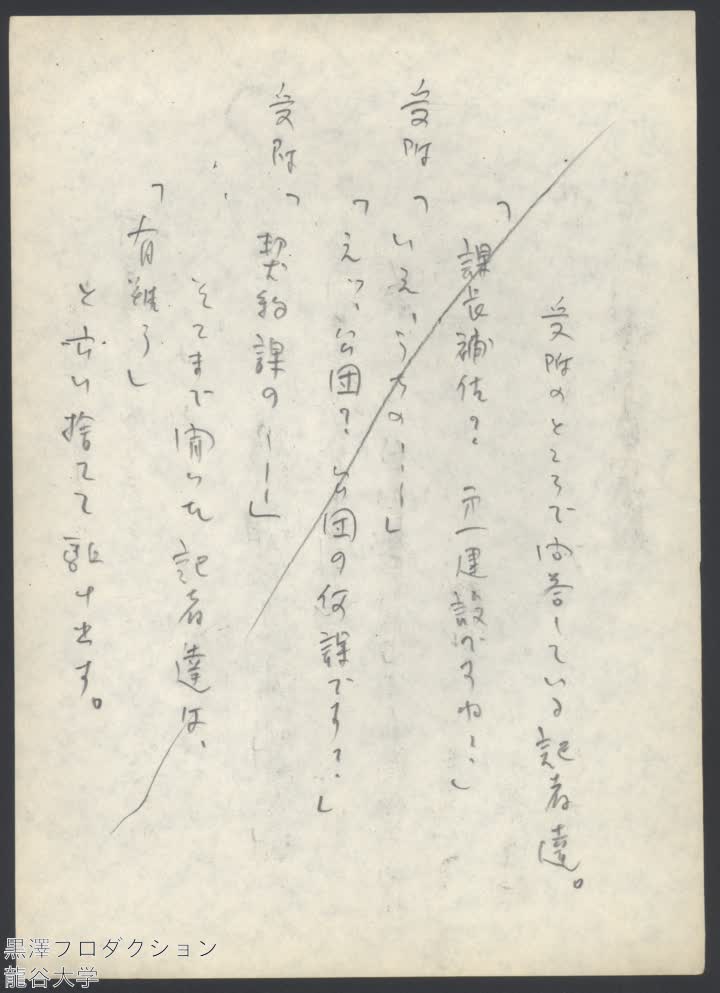 受附のところで問答している記者達。
「課長補佐? 正一建設ですね!」
受附「いえ、うちの――」
「えっ、公団? 公団の何課です?」
受附「契約課の――」
そこまで聞いた記者達は、
「有難う」
と云い捨てて駈け出す。
黒澤プロダクション
龍谷大学